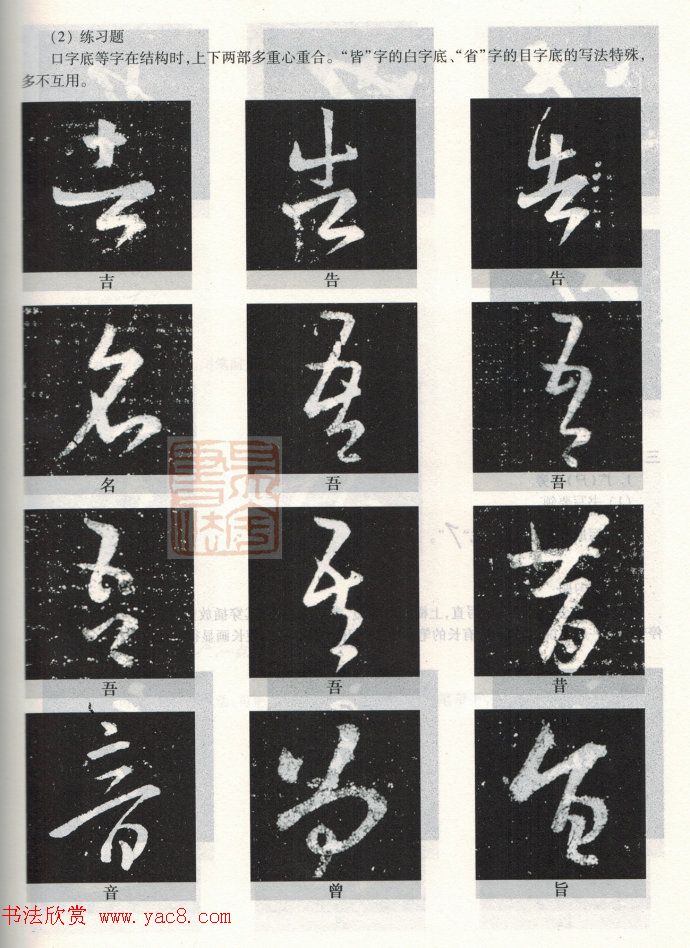 (2) 练习题
口字底等字在结构时,上下两部多重心重合。“皆”字的白字底、“省”字的目字底的写法特殊,
多不互用。
吉 告 告
名 吾 吾
吾 吾 昔
音 曾 旨
书法欣赏 www.yac8.com